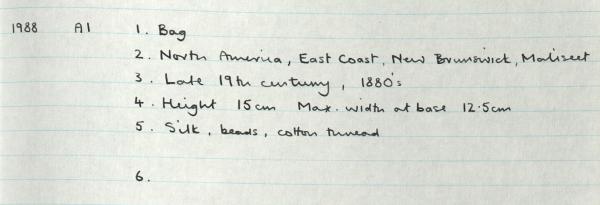 1988 A1 1. Bag
2. North America, East Coast, New Brunswick, Maliseet
3. Late 19th century, 1880's
4. Height 15cm Max. width at base 12.5cm
5. Silk, beads, cotton thread
6.